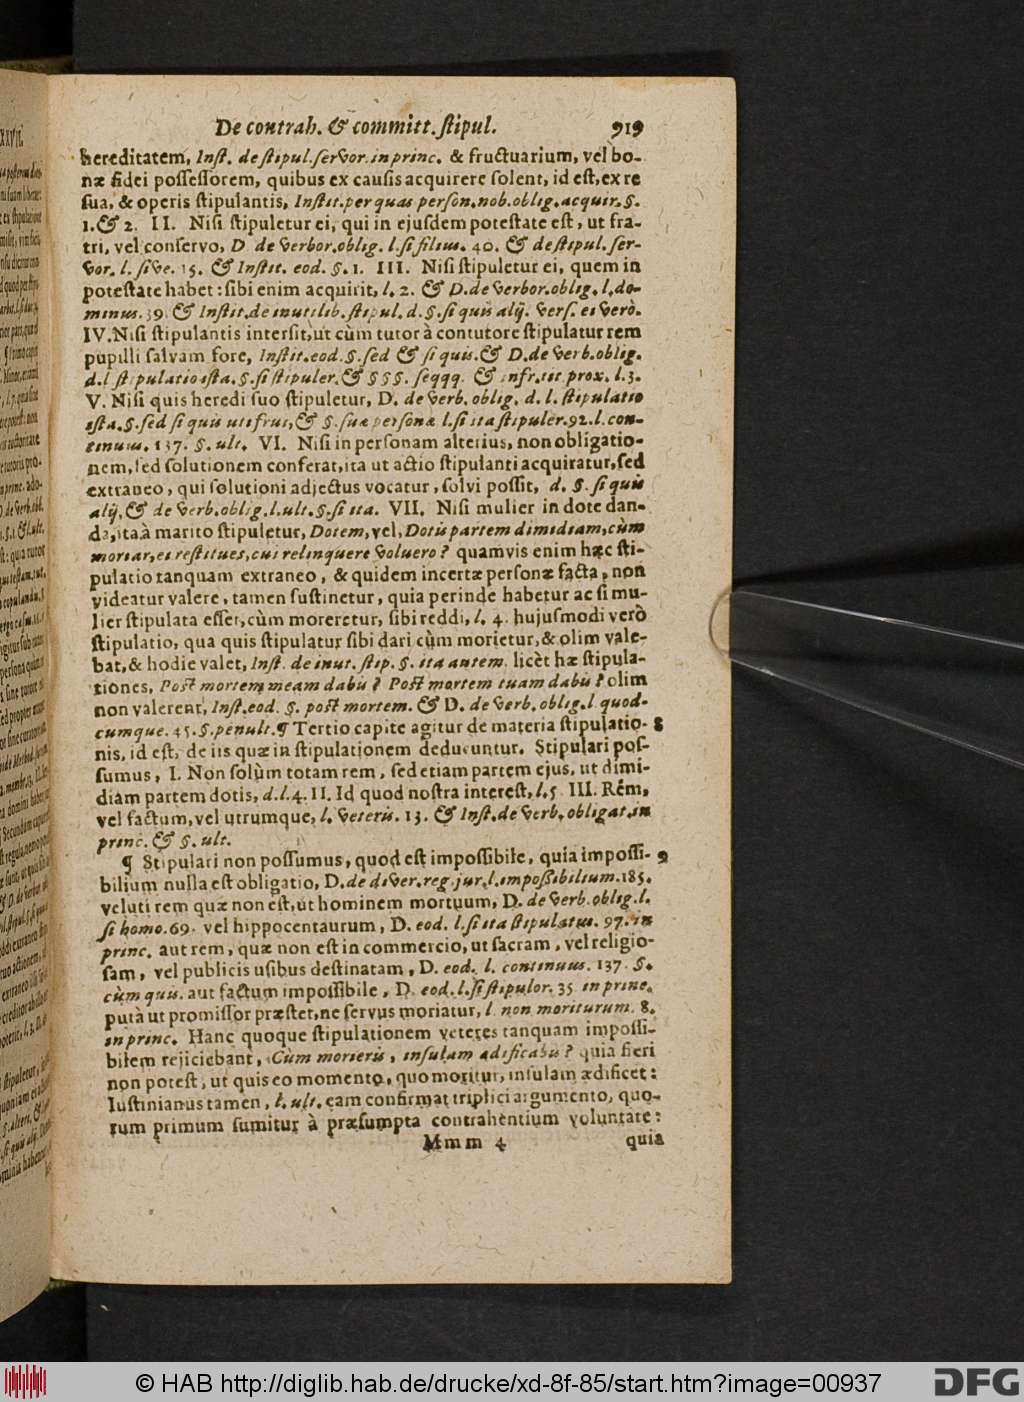 De contrah. & committ. stipul. 919
hereditatem, Inst. de stipul. servor. in princ. & fructuarium, vel bo-
næ fidei possessorem, quibus ex causis acquirere solent, id est, ex re
sua, & operis stipulantis, Instit. per quas person. nob. oblig. acquir. §.
1. & 2. II. Nisi stipuletur ei, qui in ejusdem potestate est, ut fra-
tri, vel conservo, D. de verbor. oblig. l. si filius. 40. & de stipul. ser-
vor. l. sive. 15. & Instit. eod. §. 1. III. Nisi stipuletur ei, quem in
potestate habet: sibi enim acquirit, l. 2. & D. de verbor. oblig. l. do-
minus. 39. & Instit. de inutilib. stipul. d. §. si quis alij. vers. ei verò.
IV. Nisi stipulantis intersit, ut cùm tutor à contutore stipulatur rem
pupilli salvam fore, Instit. eod. §. sed & si quis. & D. de verb. oblig.
d. l stipulatio ista. §. si stipuler. & §§§. seqqq. & infr. tit. prox. l. 3.
V. Nisi quis heredi suo stipuletur, D. de verb. oblig. d. l. stipulatio
ista. §. sed si quis uti frui, & §. suæ personæ l. si ita stipuler. 92. l. con-
tinuus. 137. §. ult. VI. Nisi in personam alterius, non obligatio-
nem, sed solutionem conferat, ita ut actio stipulanti acquiratur, sed
extraneo, qui solutioni adjectus vocatur, solvi possit, d. §. si quis
alij, & de verb. oblig. l. ult. §. si ita. VII. Nisi mulier in dote dan-
da, ita à marito stipuletur, Dotem, vel, Dotis partem dimidiam, cùm
moriar, ei restitues, cui relinquere voluero? quamvis enim hæc sti-
pulatio tanquam extraneo, & quidem incertæ personæ facta, non
videatur valere, tamen sustinetur, quia perinde habetur ac si mu-
lier stipulata esset, cùm moreretur, sibi reddi, l. 4. hujusmodi verò
stipulatio, qua quis stipulatur sibi dari cùm morietur, & olim vale-
bat, & hodie valet, Inst. de inut. stip. §. ita autem. licèt hæ stipula-
tiones, Post mortem meam dabis? Post mortem tuam dabis? olim
non valerent, Inst. eod. §. post mortem. & D. de verb. oblig. l quod-
cumque. 45. §. penult. ¶ Tertio capite agitur de materia stipulatio- 8
nis, id est, de iis quæ in stipulationem deducuntur. Stipulari pos-
sumus, I. Non solùm totam rem, sed etiam partem ejus, ut dimi-
diam partem dotis, d. l. 4. II. Id quod nostra interest, l. 5. III. Rem,
vel factum, vel utrumque, l. veteris. 13. & Inst. de verb. obligat. in
princ. & §. ult.
¶ Stipulari non possumus, quod est impossibile, quia impossi- 9
bilium nulla est obligatio, D. de diver. reg. jur. l. impoßibilium. 185.
veluti rem quæ non est, ut hominem mortuum, D. de verb. oblig. l.
si homo. 69. vel hippocentaurum, D. eod. l. si ita stipulatus. 97. in
princ. aut rem, quæ non est in commercio, ut sacram, vel religio-
sam, vel publicis usibus destinatam, D. eod. l. continuus. 137. §.
cùm quis. aut factum impossibile, D. eod. l. si stipulor. 35. in princ.
putà ut promissor præstet, ne servus moriatur, l. non moriturum. 8.
in princ. Hanc quoque stipulationem veteres tanquam impossi-
bilem rejiciebant, Cùm morieris, insulam ædificabis? quia fieri
non potest, ut quis eo momento, quo moritur, insulam ædificet:
Iustinianus tamen, l. ult. eam confirmat triplici argumento, quo-
rum primum sumitur à præsumpta contrahentium voluntate:
Mmm 4 quia
© HAB http://diglib.hab.de/drucke/xd-8f-85/start.htm?image=00937
DFG